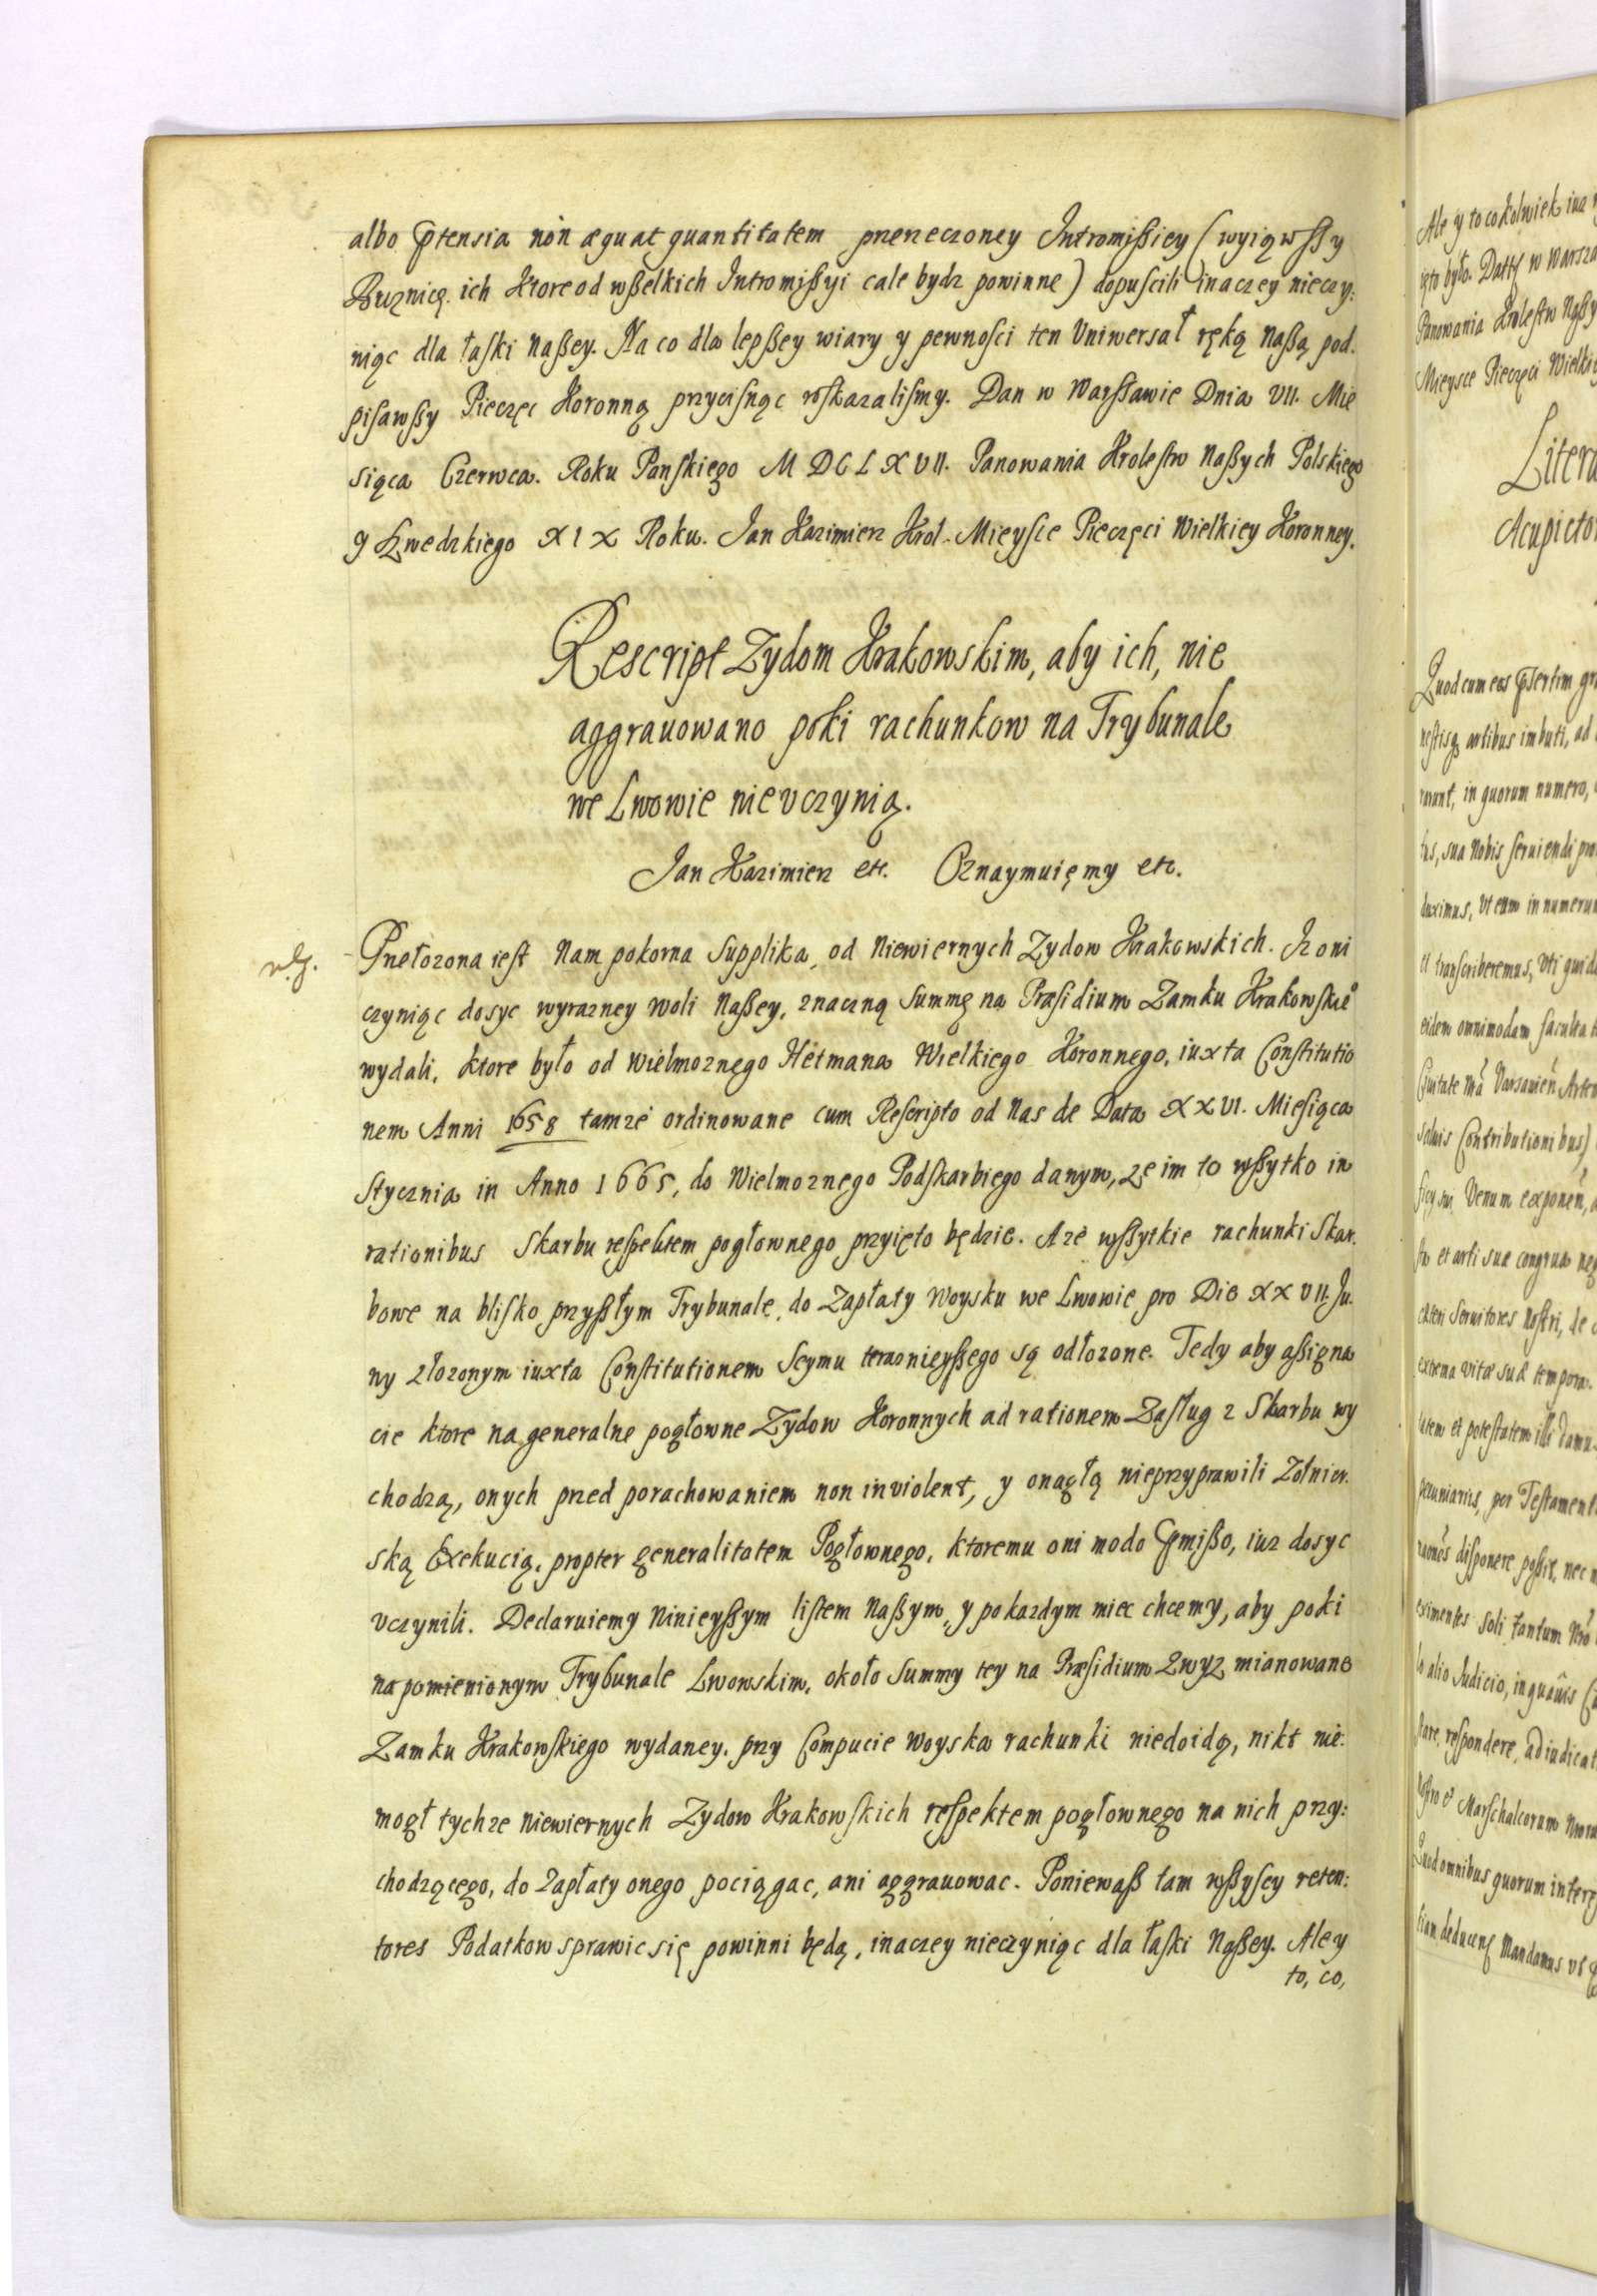 albo prtensia non æquat quantitatem przerzeczoney Intromißiey (wyiąwßy
Bużnicę ich ktore od wßelkich Intromißyi cale bydz powinne) dopuscili inaczey nieczy:
niąc dla łaski naßey. Na co dla lepßey wiary y pewnosci ten Uniwersał ręką naßą pod.
pisawßy Pieczęc Koronną przycisnąc roskazalismy. Dan w Warßawie Dnia VII. Mie
siąca Czerwca. Roku Panskiego M DC L X VII. Panowania Krolestw Naßych Polskiego
y Szwedzkiego X I X Roku. Jan Kazimierz Krol. Mieysce Pieczęci Wielkiey Koronney.
Rescript Zydom Krakowskim, aby ich, nie
aggrauowano poki rachunkow na Trybunale
we Lwowie nie vczynią.
Jan Kazimierz etc. Oznaymuięmy etc.
Przełozona iest Nam pokorna Supplika, od Niewiernych Zydow Krakowskich. Iz oni
czyniąc dosyc wyrazney woli Naßey, znaczną Summę na Præsidium Zamku Krakowskie°
wydali, ktore było od Wielmoznego Hetmana Wielkiego Koronnego, iuxta Constitutio
nem Anni 1658 tamze ordinowane cum Rescripto od Nas de Data XXVI. Miesiąca
Stycznia in Anno 1665, do Wielmoznego Podskarbiego danym, ze im to wßytko in
rationibus Skarbu respektem pogłownego przyięto będzie. A ze wßytkie rachunki Skar.
bowe na blisko przyßłym Trybunale, do Zapłaty Woysku we Lwowie pro Die XXVII. Ju.
ny złozonym iuxta Constitutionem Seymu teraznieyßego są odłozone. Tedy aby aßigna
cie ktore na generalne pogłowne Zydow Koronnych ad rationem Zasług z Skarbu wy
chodzą, onych przed porachowaniem non inviolent, y onagłą nieprzyprawili Zołnier.
ską Exekucią, propter generalitatem Pogłownego, ktoremu oni modo prmißo, iuz dosyc
vczynili. Declaruiemy Ninieyßym listem Naßym, y po kazdym miec chcemy, aby poki
na pomienionym Trybunale Lwowskim, około Summy tey na Præsidium Zwyz mianowane
Zamku Krakowskiego wydaney, przy Compucie Woyska rachunki niedoidą, nikt nie:
mogł tychze Niewiernych Zydow Krakowskich respektem pogłownego na nich przy:
chodzącego, do Zapłaty onego pociągac, ani aggrauowac. Poniewaß tam wßyscy reten:
tores Podatkow sprawic się powinni będą, inaczey nieczyniąc dla łaski Naßey. Ale y
to, co,
Ale y to cokolwiek iuz
ięto było. Datt w Warsza
Panowania Krolestw Naßy
Mieysce Pieczęci Wielkie
Litera
Acupicto
Quod cum eos prsertim gr
nestisq artibus imbuti, ad
rarunt, in quorum numero,
tus, sua Nobis seruiendi pro
duximus, Vt eum in numerum
et transcriberemus, Vti quid
eidem omnimodam faculta
Ciuitate Nra Varsauien Arte
seluis Contributionibus)
Venum exponen,
et arti sue congrua neg
cæteri Seruitores Nostri, de
extrema vitæ suæ tempora.
tatem et potestatem illi damus
pecuniariis, per Testament
disponere possit, nec
eximentes soli tantum Nro
alio Judicio, in quauis Ci
stare, respondere, adiudicat
Marschalcorum Nrorum
Quod omnibus quorum intere
tiam deducens Mandamus vt